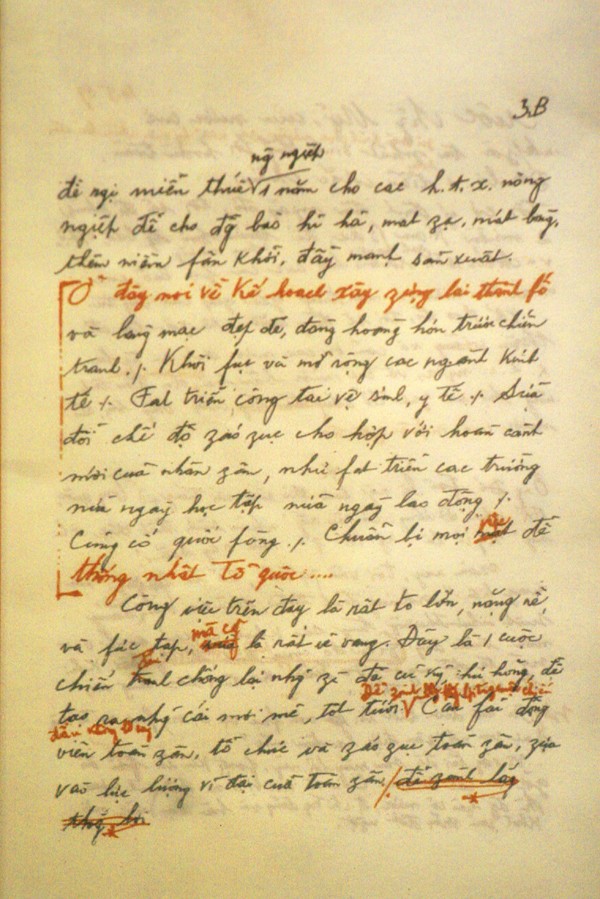 3B
ng̃ ngiệp
đề ngị miễn thuế 1 năm cho các h.t.x. nông
ngiệp để cho đ̃g bào hỉ hả, mát zạ, mát lòng,
thêm niềm fấn khởi, đẩy mạnh sản xuất.
Ở đây nói về Kế hoạch xây zựng lại thành fố
và làng mạc đẹp đẽ, đàng hoàng hơn trước chiến
tranh ./. Khôi fục và mở rộng các ngành kinh
tế ./. Fát triển công tác vệ sinh, y tế ./. Sửa
đổi chế độ záo zục cho hợp với hoàn cảnh
mới của nhân zân, như fát triển các trường
nửa ngày học tập nửa ngày lao động ./.
Củng cố quốc fòng ./. Chuẩn bị mọi việc để
thống nhất Tổ quốc....
Công việc trên đây là rất to lớn, nặng nề,
và fức tạp, mà cũ̃g là rất vẻ vang. Đây là 1 cuộc
chiến đấu chống lại nhữ̃g zì đã cũ kỹ, hư hỏng, để
tạo ra nhữ̃g cái mới mẻ, tốt tươi. Để zành lấy thắ̃g lợi trong cuộc chiến
đấu khổ̃g lồ này Cần fải động
viên toàn zân, tổ chức và záo zục toàn zân, zựa
vào lực lượng vĩ đại của toàn zân. để zành lấy
thắ̃g lợi